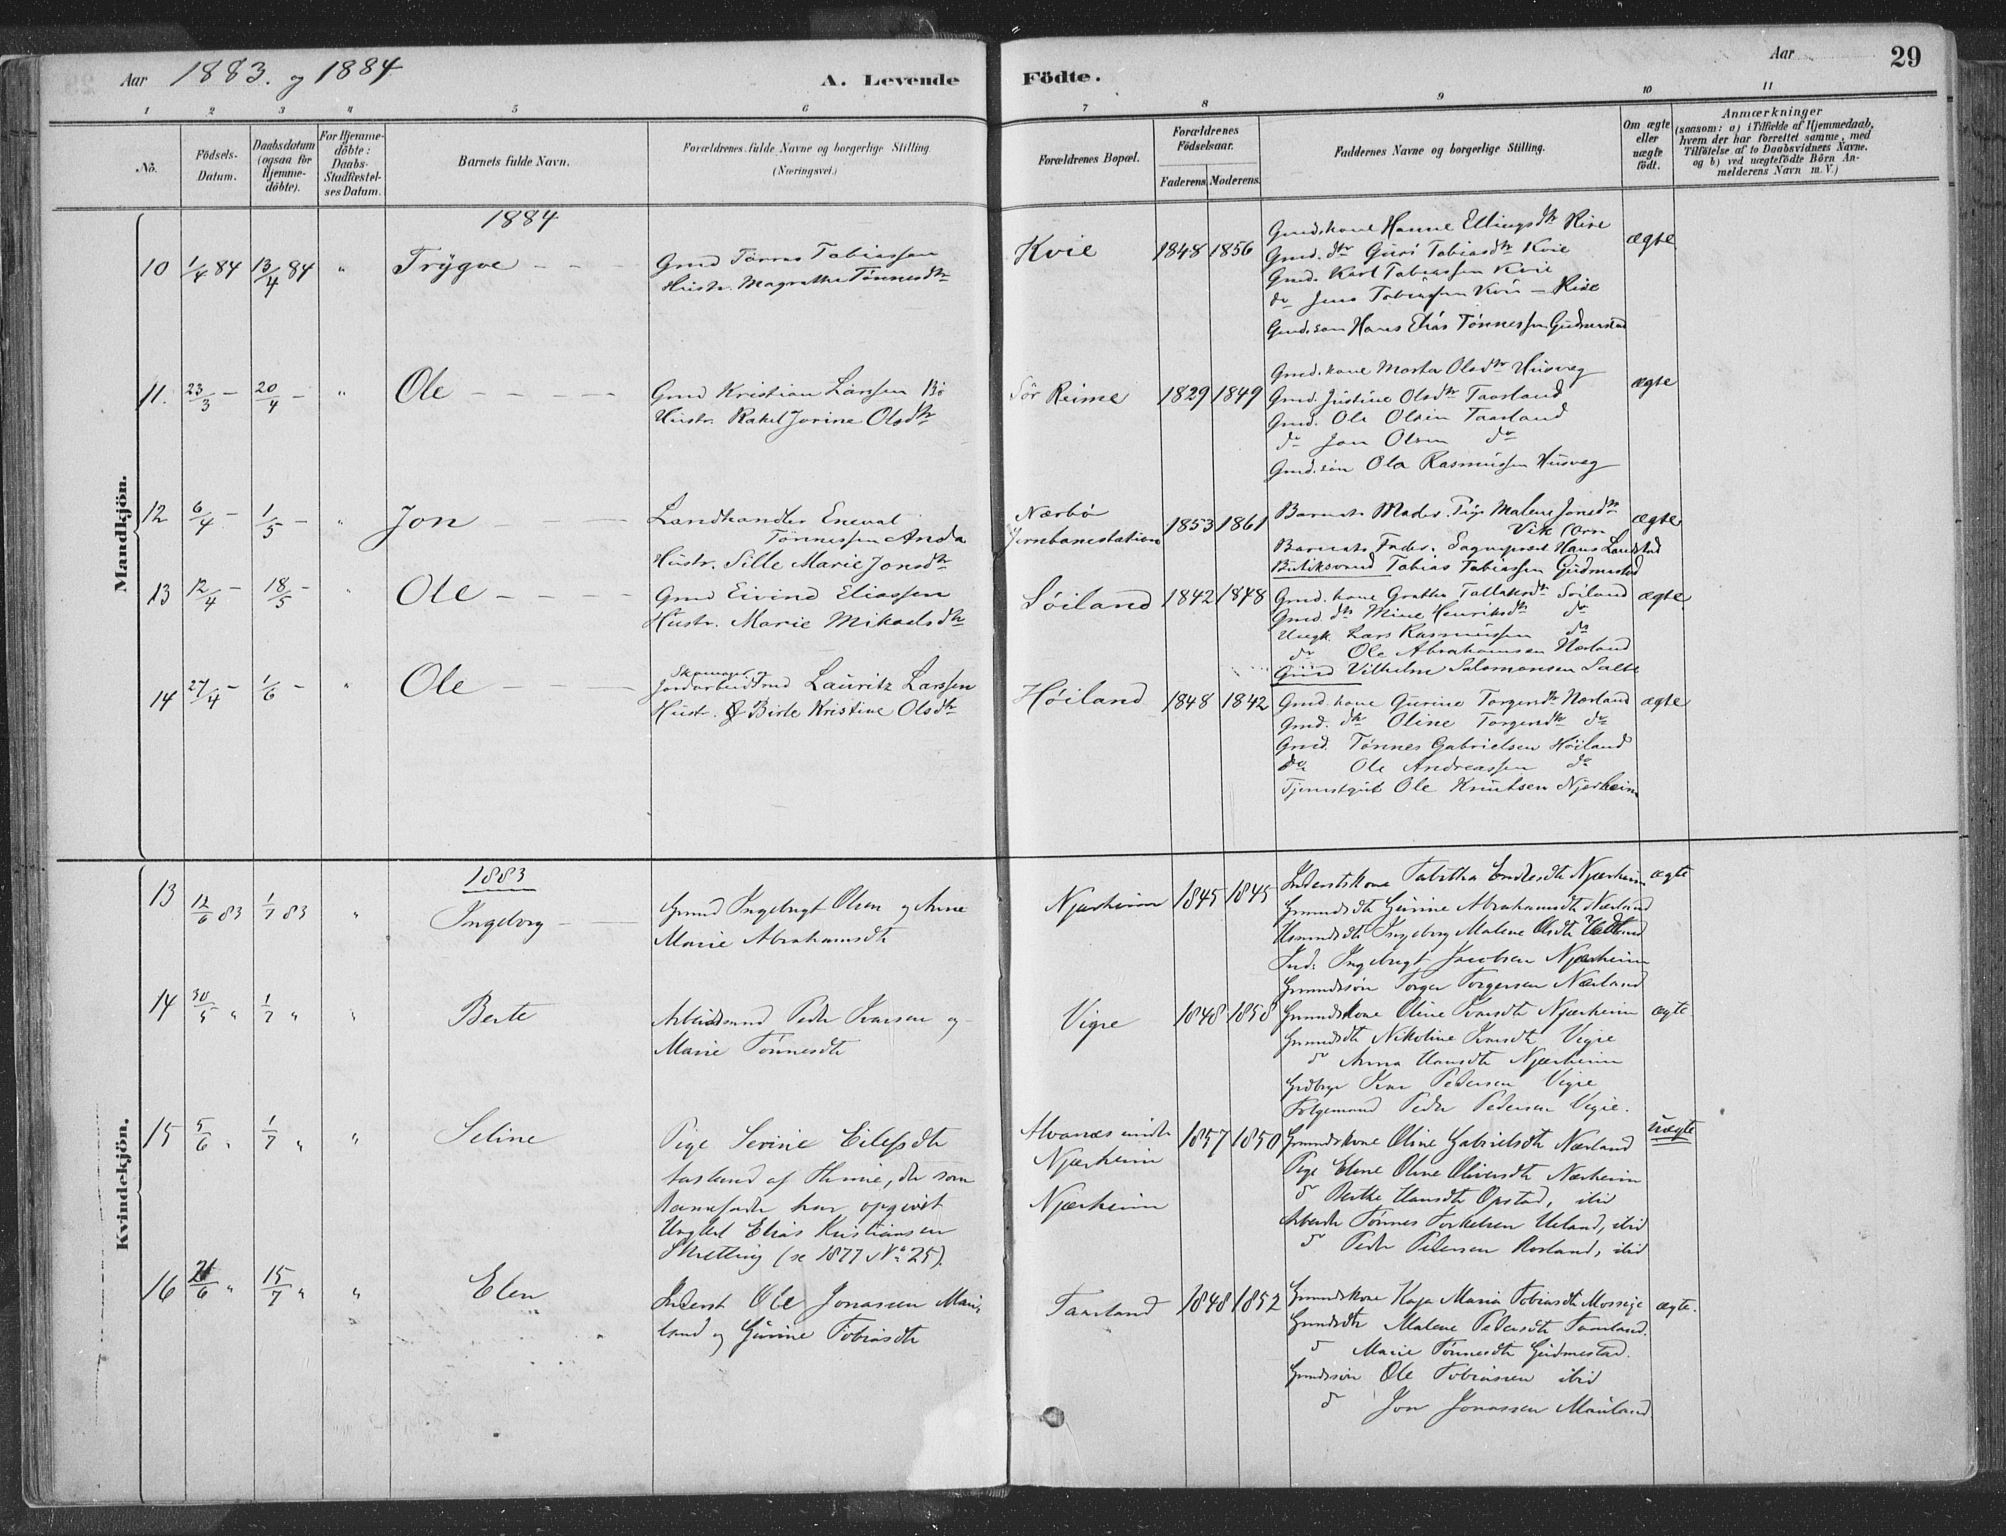 Aar 1883. og 1884
A. Levende Födte.
Aar
29
1 2 3 4 5 6 7 8 9 10 11
No.
Födsels-Datum.
Daabsdatum (ogsaa for Hjemme-döbte).
For Hjemme-döbte: Daabs-Stadfæstel-ses Datum.
Barnets fulde Navn.
Forældrenes fulde Navne og borgerlige Stilling (Næringsvei.)
Forældrenes Bopæl.
Forældrenes Födselsaar.
Faderens. Moderens.
Faddernes Navne og borgerlige Stilling.
Om ægte eller uægte födt.
Anmærkninger
(saasom: a) i Tilfælde af Hjemmedaab, hvem der har forrettet samme, med Tilföielse af to Daabsvidners Navne. og b) ved uægtefödte Börn An-melderens Navn m. V.)
Mandkjön.
1884
10 1/4 84 13/4 84 " Trygve
Gmd Tørres Tobiassen
Hustr. Magrethe Tønnesdtr
Kvie 1848 1856
Gmd. kone Hanne Ellingsdtr Rise
Gmd. dtr Guri Tobiasdtr Kvie
Gmd. Karl Tobiassen Kvie
do Jens Tobiassen Kvie - Rise
Gmd. søn Hans Elias Tønnessen Gudmestad
ægte
11. 23/3 - 20/4 - " Ole
Gmd Kristian Larsen Bö
Hustr. Rakel Jorine Olsdtr
Sör Reime 1829 1849
Gmd. kone Marta Olsdtr Husveg
Gmd. Justine Olsdtr Taarland
Gmd. Ole Olsen Taarland
do Jon Olsen do
Gmd. søn Ola Rasmussen Husveg
ægte
12 6/4 - 1/5 - " Jon
Landhandler Enevat
Tønnessen Anda
Hustr. Sille Marie Jonsdtr
Nærbø
Jernbanestation 1853 1861
Barnets Moder. Pige Malene Jonsdtr
Vik
Barnets Fader. Hans Landstad
Butiksvend Tobias Tobiassen Gudmestad
ægte
13 12/4 - 18/5 - " Ole
Gmd Eivind Eliassen
Hustr. Marie Mikaelsdtr
Søiland 1842 1848
Gmd. kone Grethe Tollaksdtr Søiland
Gmd. dtr Mine Henriksdtr do
Ungk. Lars Rasmussen do
do Ole Abrahamsen Norland
Gmd Vilhelm Salomonsen Salte
ægte
14 27/4 - 1/6 - " Ole
Skomager og
Jordarbeid Lauritz Larssen
Hustr. Birte Kristine Olsdtr
Høiland 1848 1842
Gmd. kone Gurine Torgersdtr Norland
Gmd. dtr Oline Torgersdtr do
Gmd. Tønnes Gabrielsen Høiland
do Ole Andreassen do
Tjenestgut Ole Knutsen Njærheim
ægte
Kvindekjön.
1883
13 12/6 83 1/7 83 " Ingeborg
Grmd Ingebregt Olsen og Anne
Marie Abrahamsdtr
Njærheim 1845 1845
Inderstkone Tabitha Endresdtr Njærheim
Grmandsdtr Gurine Abrahamsdtr Nærland
Ingeborg Malene Olsdtr
Ind. Ingebregt Jacobsen Njærheim
Grmandsøn Torger Torgersen Nærland
ægte
14 30/5 " 1/7 " " Berte
Arbeidsmand Peder Ivarsen og
Marie Tønnesdtr
Vigre 1848 1858
Grmandskone Oline Ivarsdtr Njærheim
Grmandsdtr Nikoline Ivarsdtr Vigre
do Anna Hansdtr Njærheim
Ivar Pedersen Vigre
Folgemand Peder Pedersen Vigre.
ægte
15 5/6 " 1/7 " " Seline
Pige Serine Eilefsdtr
af Hinnie, der som
Barnefader har opgivet
Ungkl Elias Kristiansen
Skretting (se 1877 No 25).
Njærheim
Njærheim 1857 1850
Grmandskone Oline Gabrielsdtr Nærland
Pige Elene Oline Oliversdtr Nærheim
do Berthe Hansdtr Opstad, ibid
Arbeider Tønnes Torkelsen Ueland, ibid
do Peder Pedersen Rosland, ibid
uægte
16 21/6 " 15/7 " " Elen
Inderst Ole Jonassen Mau-
land og Gurine Tobiasdtr
Taarland 1848 1852
Grmandskone Kaja Maria Tobiasdtr Mossige
Grmandsdtr Malene Pedersdtr Taarland.
do Marie Tønnesdtr Gudmestad.
Grmandssøn Ole Tobiassen ibid
do Jon Jonassen Mauland.
ægte.